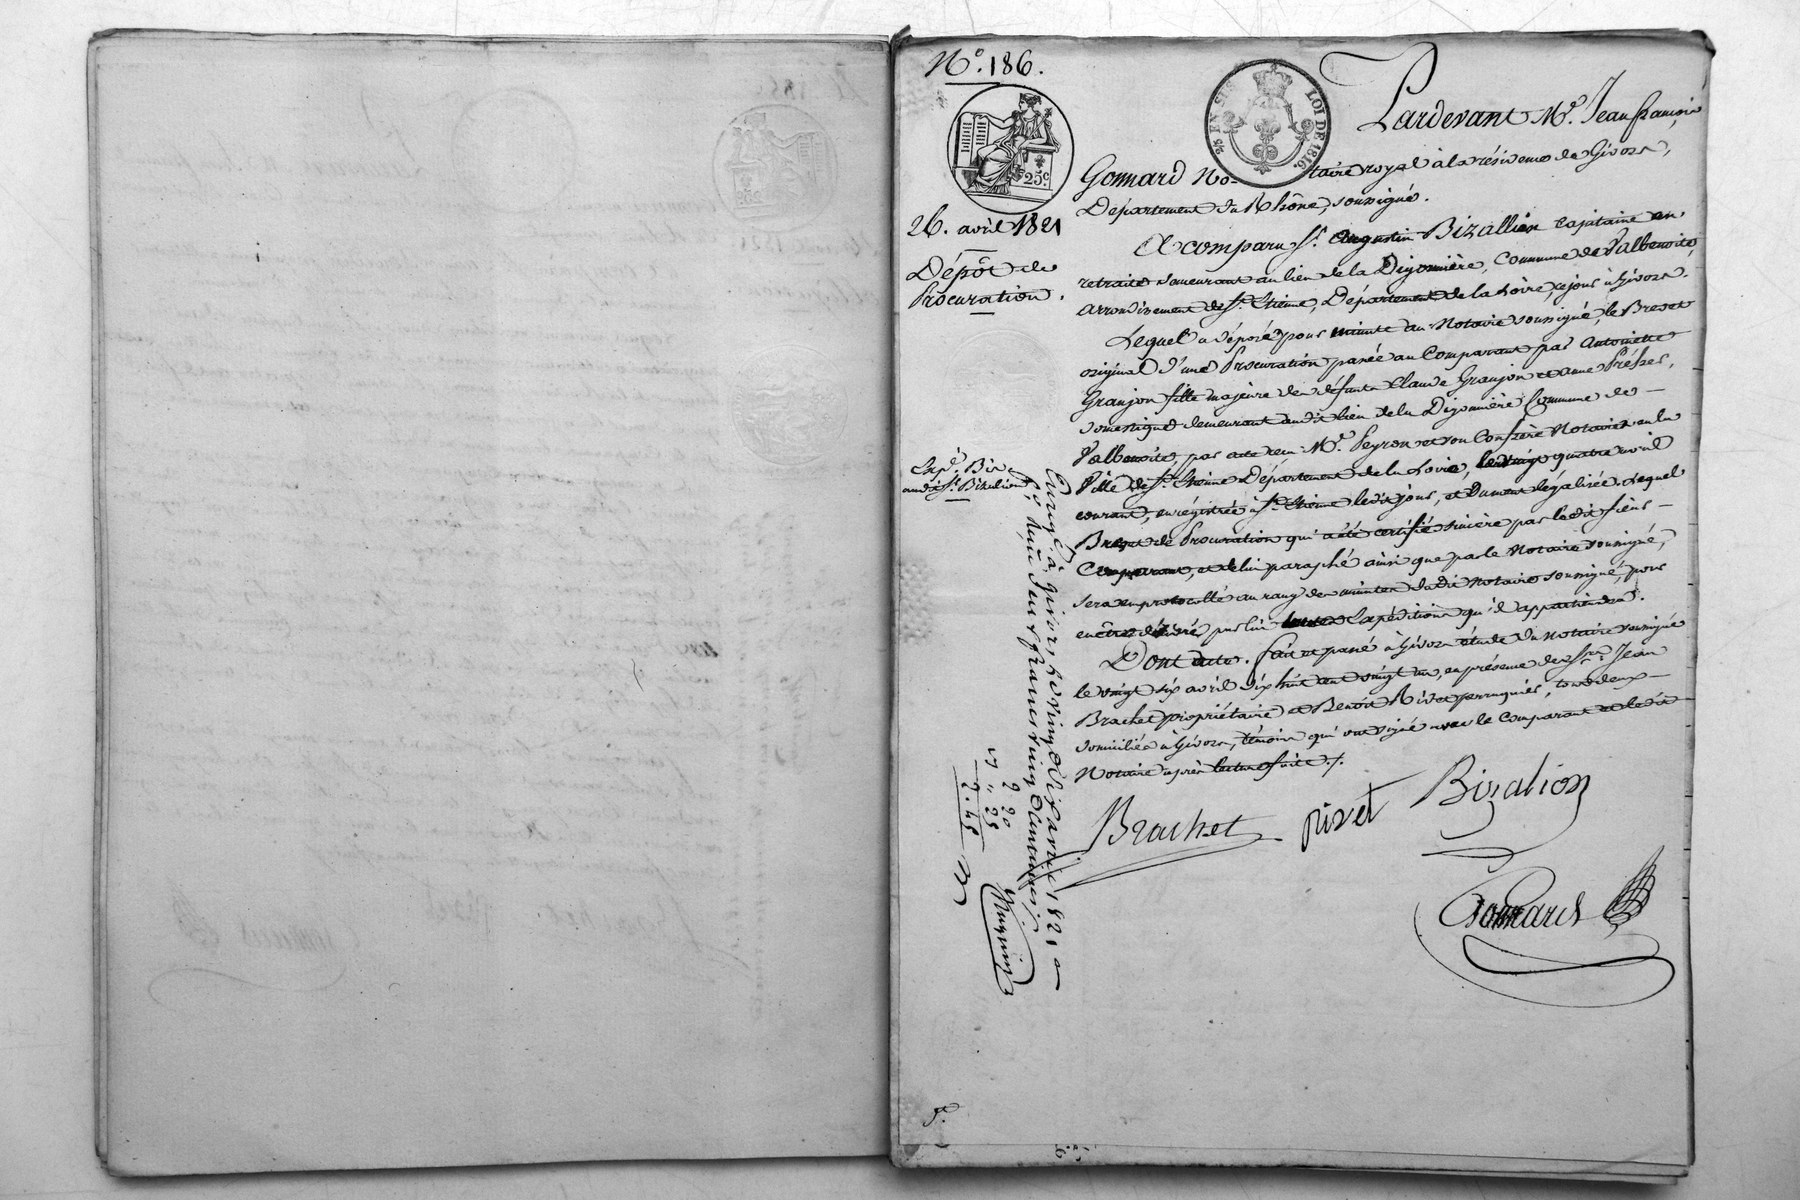 N.º 186.
25 EN SUS
LOI DE 1816.
25.c
Pardevant M.e Jean françois
Gonnard No- taire royal à la résidence de Givors,
Département du Rhône, soussigné.
26. avril 1821
Dépôt de
Procuration.
A comparu S.r Augustin Bizallion Capitaine en
retraite demeurant au lieu de la Digonnière, Commune de Valbenoite,
arrondissement de S.t Etienne, Département de la Loire, ce jour à Givors.
Lequel a déposé pour minute au Notaire soussigné, le Brevet
original d'une Procuration passée au Comparant par Antoinette
Granjon fille majeure de défunts Claude Granjon et anne
domestique demeurant audit lieu de la Digonnière Commune de —
Valbenoite, par acte reçu M.e Peyron et son Confrère Notaires en la
Ville de S.t Etienne Département de la Loire, le vingt quatre avril
courant, enrégistrée à S.t Etienne ledit jour, et dument légalisée. Lequel
Brevet de Procuration qui a été certifié sincère par ledit sieur —
Comparant, et de lui paraphé ainsi que par le Notaire soussigné,
sera enprotocollé au rang des minutes dudit Notaire soussigné, pour
en être délivré par lui toutes Expéditions qu'il appartiendra.
Dont acte. fait et passé à Givors étude du Notaire soussigné
le vingt six avril dix huit cent vingt un, en présence de S.rs Jean
Brachet propriétaire et Benoit Rivet perruquier, tous deux —
domiciliés à Givors, témoins qui ont signé avec le Comparant et ledit
Notaire après lecture faite ./.
Exp.é Bis
audit S.r Bizalion
Enregé. à Givors, le vingt six avril 1821
reçu deux francs vingt centimes
2 20
" 25
2.45
Brachet
rivet
Bizalion
Gonnard